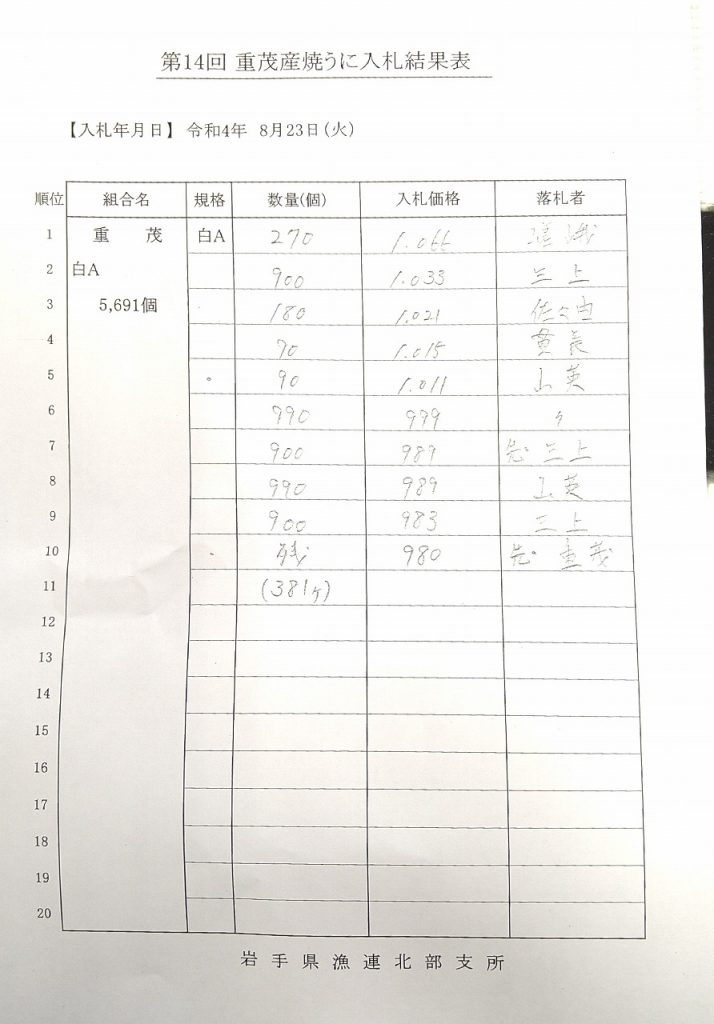 第14回 重茂産焼うに入札結果表
【入札年月日】 令和4年 8月23日(火)
順位 組合名 規格 数量(個) 入札価格 落札者
1 重 茂 白A 270 1.066
2 白A 900 1.033 三上
3 5,691個 180 1.021 佐々由
4 90 1.015 貫長
5 90 1.011 山英
6 990 999 〃
7 900 989 三上
8 990 989 山英
9 900 983 三上
10 残 980 重茂
11 (381ヶ)
12
13
14
15
16
17
18
19
20
岩手県漁連北部支所